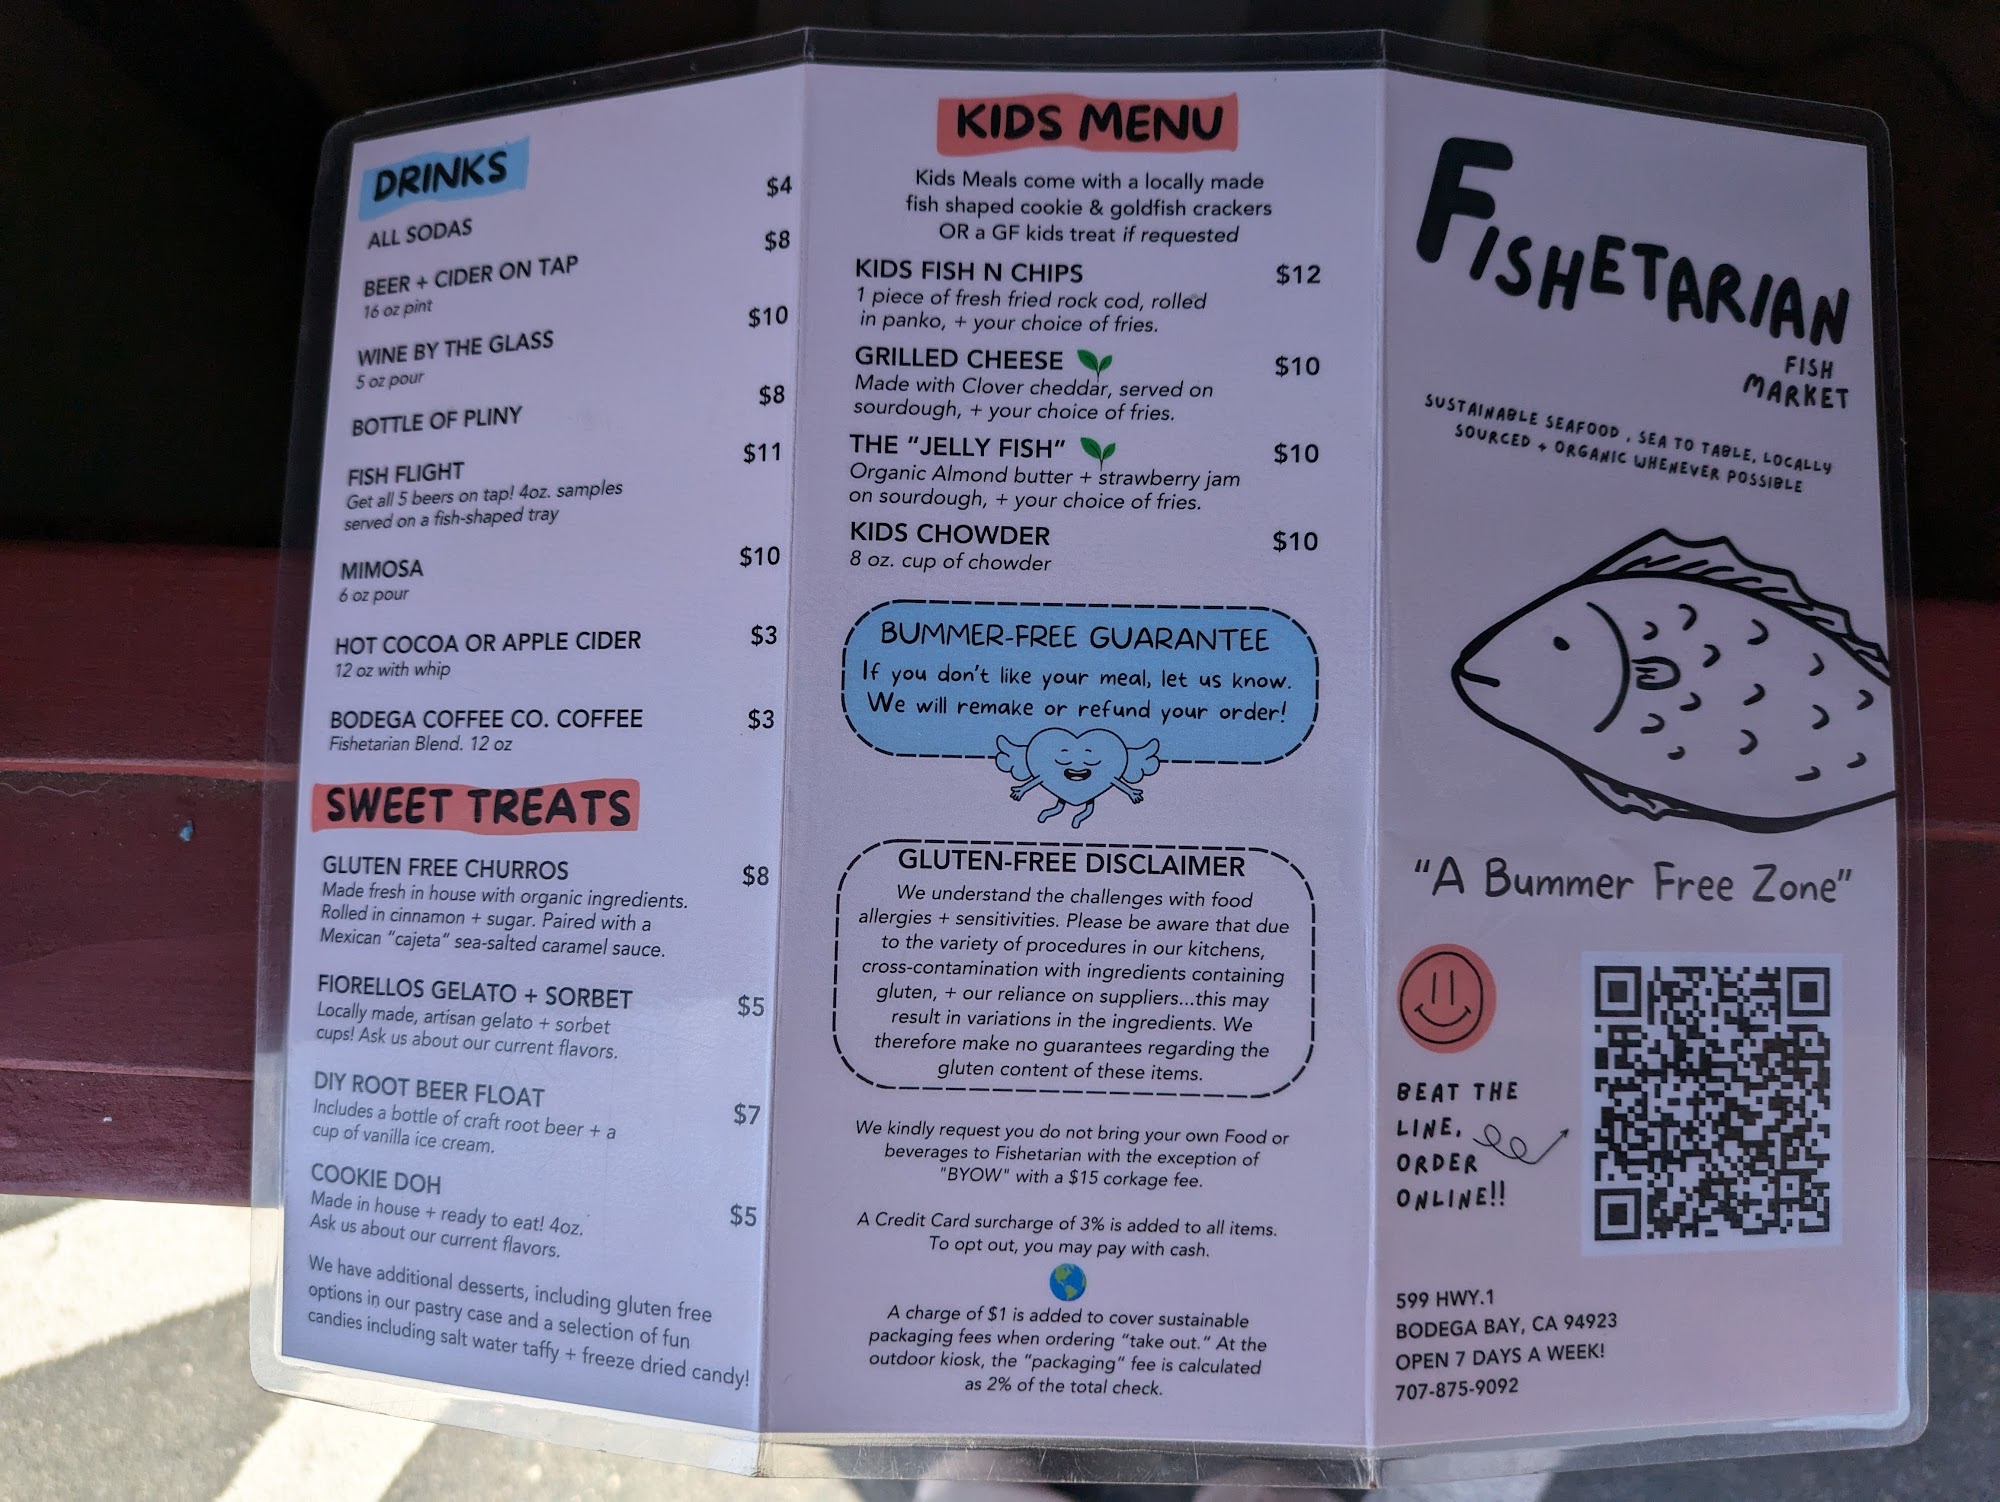 DRINKS
ALL SODAS $4
BEER + CIDER ON TAP $8
16 oz pint
WINE BY THE GLASS $10
5 oz pour
BOTTLE OF PLINY $8
FISH FLIGHT $11
Get all 5 beers on tap! 4oz. samples
served on a fish-shaped tray
MIMOSA $10
6 oz pour
HOT COCOA OR APPLE CIDER $3
12 oz with whip
BODEGA COFFEE CO. COFFEE $3
Fishetarian Blend. 12 oz
SWEET TREATS
GLUTEN FREE CHURROS $8
Made fresh in house with organic ingredients.
Rolled in cinnamon + sugar. Paired with a
Mexican "cajeta" sea-salted caramel sauce.
FIORELLOS GELATO + SORBET $5
Locally made, artisan gelato + sorbet
cups! Ask us about our current flavors.
DIY ROOT BEER FLOAT $7
Includes a bottle of craft root beer + a
cup of vanilla ice cream.
COOKIE DOH $5
Made in house + ready to eat! 4oz.
Ask us about our current flavors.
We have additional desserts, including gluten free
options in our pastry case and a selection of fun
candies including salt water taffy + freeze dried candy!
KIDS MENU
Kids Meals come with a locally made
fish shaped cookie & goldfish crackers
OR a GF kids treat if requested
KIDS FISH N CHIPS $12
1 piece of fresh fried rock cod, rolled
in panko, + your choice of fries.
GRILLED CHEESE $10
Made with Clover cheddar, served on
sourdough, + your choice of fries.
THE "JELLY FISH" $10
Organic Almond butter + strawberry jam
on sourdough, + your choice of fries.
KIDS CHOWDER $10
8 oz. cup of chowder
BUMMER-FREE GUARANTEE
If you don't like your meal, let us know.
We will remake or refund your order!
GLUTEN-FREE DISCLAIMER
We understand the challenges with food
allergies + sensitivities. Please be aware that due
to the variety of procedures in our kitchens,
cross-contamination with ingredients containing
gluten, + our reliance on suppliers...this may
result in variations in the ingredients. We
therefore make no guarantees regarding the
gluten content of these items.
We kindly request you do not bring your own Food or
beverages to Fishetarian with the exception of
"BYOW" with a $15 corkage fee.
A Credit Card surcharge of 3% is added to all items.
To opt out, you may pay with cash.
A charge of $1 is added to cover sustainable
packaging fees when ordering "take out." At the
outdoor kiosk, the "packaging" fee is calculated
as 2% of the total check.
FISHETARIAN
FISH
MARKET
SUSTAINABLE SEAFOOD, SEA TO TABLE, LOCALLY
SOURCED + ORGANIC WHENEVER POSSIBLE
"A Bummer Free Zone"
BEAT THE
LINE,
ORDER
ONLINE!!
599 HWY.1
BODEGA BAY, CA 94923
OPEN 7 DAYS A WEEK!
707-875-9092